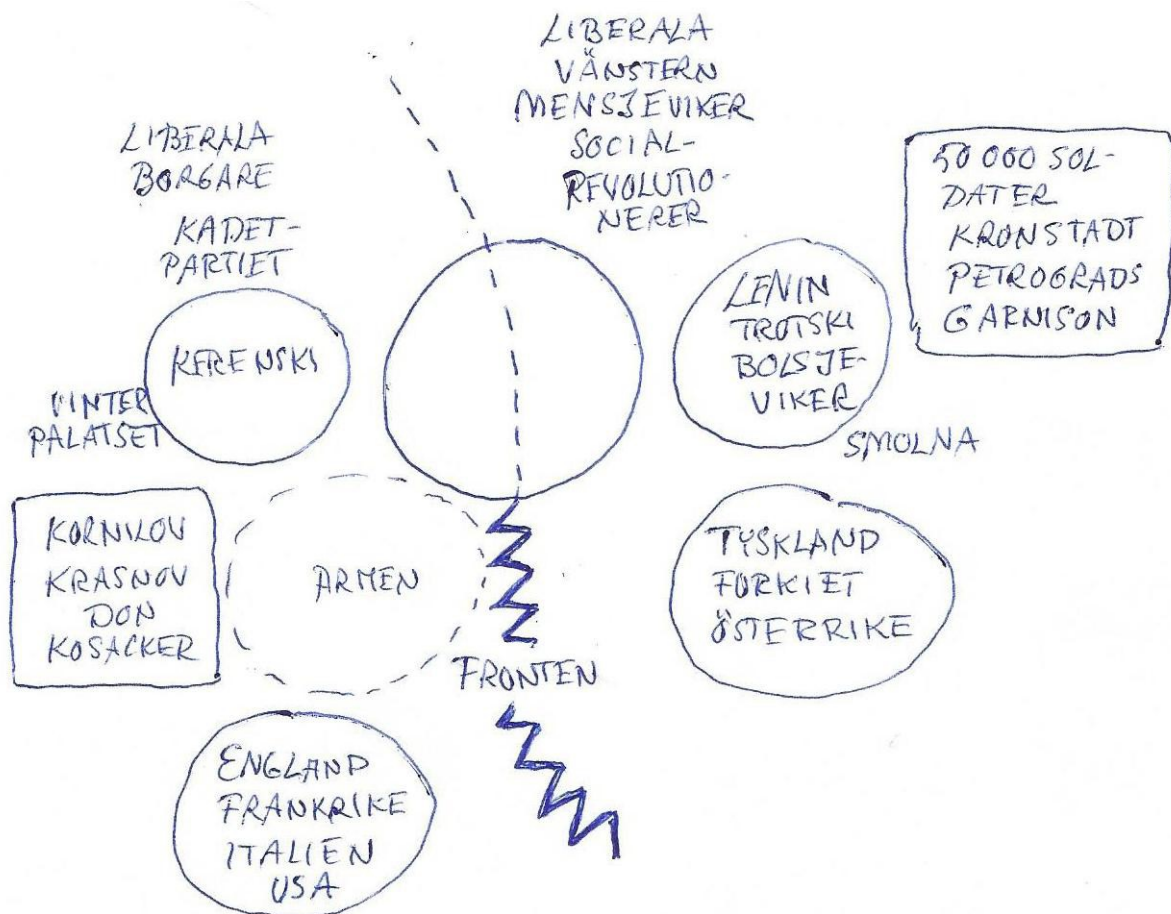 LIBERALA
VÄNSTERN
MENSJEVIKER
SOCIAL-
REVOLUTIO-
NERER
LIBERALA
BORGARE
KADET-
PARTIET
50 000 SOL-
DATER
KRONSTADT
PETROGRADS
GARNISON
KERENSKI
LENIN
TROTSKI
BOLSJE-
VIKER
VINTER
PALATSET
SMOLNA
KORNILOV
KRASNOV
DON
KOSACKER
ARMEN
TYSKLAND
TURKIET
ÖSTERRIKE
FRONTEN
ENGLAND
FRANKRIKE
ITALIEN
USA